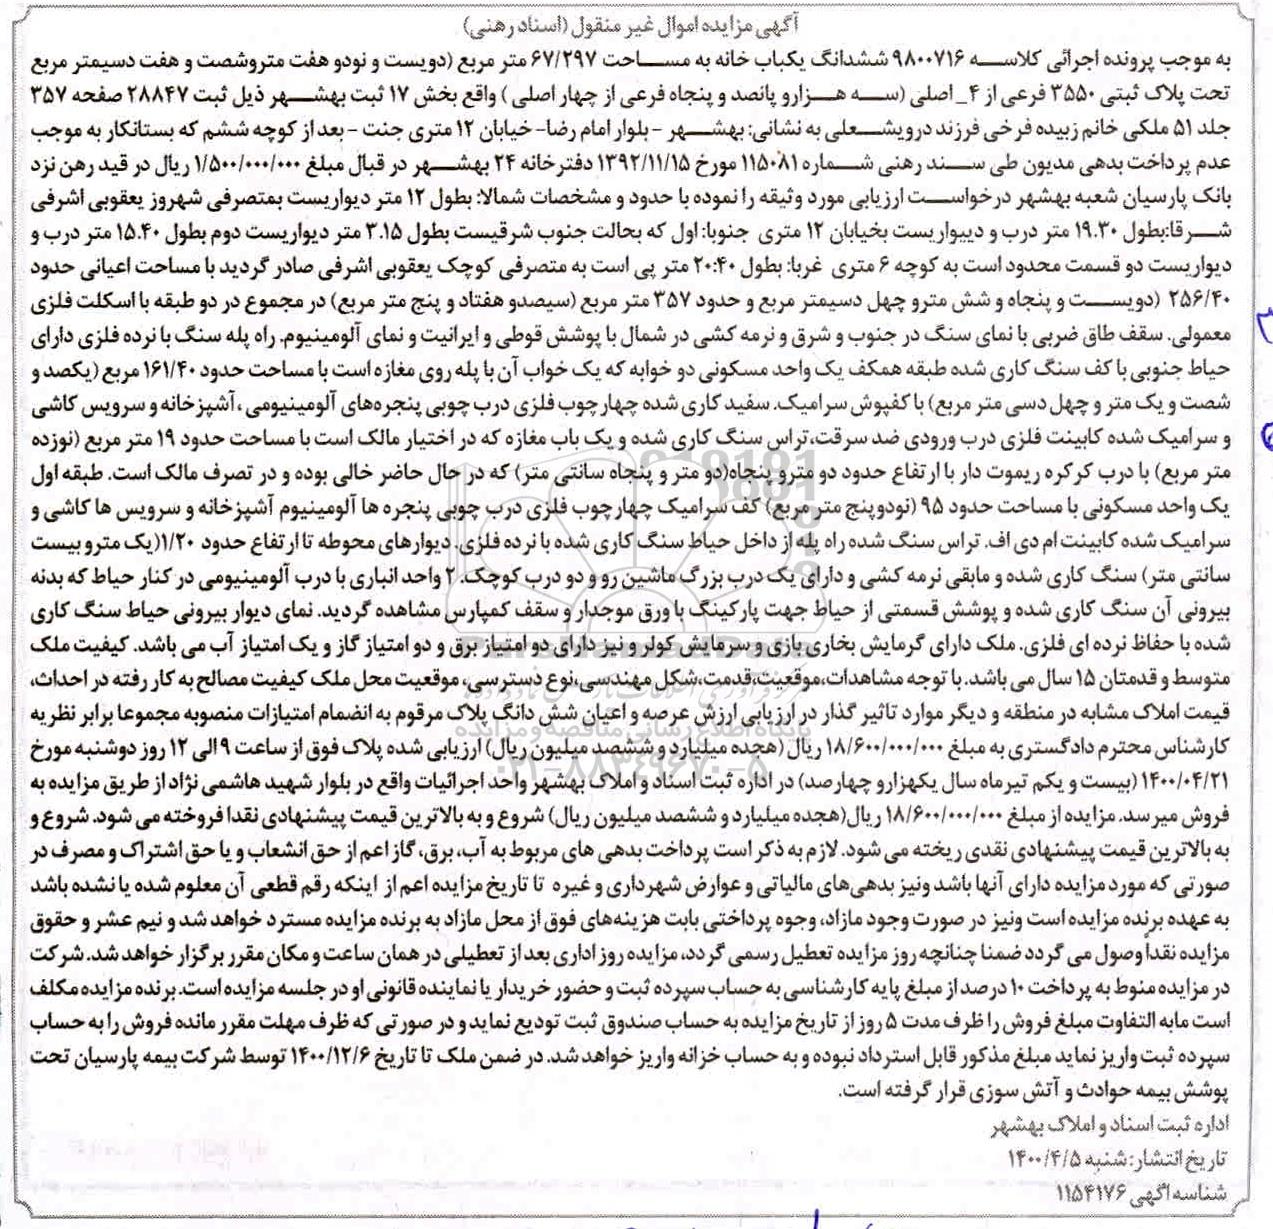 آگهی مزایده اموال غیر منقول (اسناد رهنی)
به موجب پرونده اجرائی کلاسه ۹۸۰۰۷۱۶ ششدانگ یکباب خانه به مساحت ۶۷/۲۹۷ متر مربع (دویست و نودو هفت متروشصت و هفت دسیمتر مربع
تحت پلاک ثبتی ۳۵۵۰ فرعی از ۴_ اصلی (سه هزارو پانصد و پنجاه فرعی از چهار اصلی ) واقع بخش ۱۷ ثبت بهشهر ذیل ثبت ۲۸۸۴۷ صفحه ۳۵۷
جلد ۵۱ ملکی خانم زبیده فرخی فرزند درویشعلی به نشانی: بهشهر - بلوار امام رضا- خیابان ۱۲ متری جنت - بعد از کوچه ششم که بستانکار به موجب
عدم پرداخت بدهی مدیون طی سند رهنی شماره ۱۱۵۰۸۱ مورخ ۱۳۹۲/۱۱/۱۵ دفترخانه ۲۴ بهشهر در قبال مبلغ ۱/۵۰۰/۰۰۰/۰۰۰ ریال در قید رهن نزد
بانک پارسیان شعبه بهشهر درخواست ارزیابی مورد وثیقه را نموده با حدود و مشخصات شمالا: بطول ۱۲ متر دیواریست بمتصرفی شهروز یعقوبی اشرفی
شرقا:بطول ۱۹.۳۰ متر درب و دیبواریست بخیابان ۱۲ متری جنوبا: اول که بحالت جنوب شرقیست بطول ۳.۱۵ متر دیواریست دوم بطول ۱۵.۴۰ متر درب و
دیواریست دو قسمت محدود است به کوچه ۶ متری غربا: بطول ۲۰:۴۰ متر پی است به متصرفی کوچک یعقوبی اشرفی صادر گردید با مساحت اعیانی حدود
۲۵۶/۴۰ (دویست و پنجاه و شش مترو چهل دسیمتر مربع و حدود ۳۵۷ متر مربع (سیصدو هفتاد و پنج متر مربع) در مجموع در دو طبقه با اسکلت فلزی
معمولی. سقف طاق ضربی با نمای سنگ در جنوب و شرق و نرمه کشی در شمال با پوشش قوطی و ایرانیت و نمای آلومینیوم. راه پله سنگ با نرده فلزی دارای
حیاط جنوبی با کف سنگ کاری شده طبقه همکف یک واحد مسکونی دو خوابه که یک خواب آن با پله روی مغازه است با مساحت حدود ۱۶۱/۴۰ مربع (یکصد و
شصت و یک متر و چهل دسی متر مربع) با کفپوش سرامیک. سفید کاری شده چهارچوب فلزی درب چوبی پنجره‌های آلومینیومی ،آشپزخانه و سرویس کاشی
و سرامیک شده کابینت فلزی درب ورودی ضد سرقت،تراس سنگ کاری شده و یک باب مغازه که در اختیار مالک است با مساحت حدود ۱۹ متر مربع (نوزده
متر مربع) با درب کرکره ریموت دار با ارتفاع حدود دو مترو پنجاه(دو متر و پنجاه سانتی متر) که در حال حاضر خالی بوده و در تصرف مالک است. طبقه اول
یک واحد مسکونی با مساحت حدود ۹۵ (نودوپنج متر مربع) کف سرامیک چهارچوب فلزی درب چوبی پنجره ها آلومینیوم آشپزخانه و سرویس ها کاشی و
سرامیک شده کابینت ام دی اف. تراس سنگ شده راه پله از داخل حیاط سنگ کاری شده با نرده فلزی. دیوارهای محوطه تا ارتفاع حدود ۱/۲۰(یک مترو بیست
سانتی متر) سنگ کاری شده و مابقی نرمه کشی و دارای یک درب بزرگ ماشین رو و دو درب کوچک. ۲ واحد انباری با درب آلومینیومی در کنار حیاط که بدنه
بیرونی آن سنگ کاری شده و پوشش قسمتی از حیاط جهت پارکینگ با ورق موجدار و سقف کمپارس مشاهده گردید. نمای دیوار بیرونی حیاط سنگ کاری
شده با حفاظ نرده ای فلزی. ملک دارای گرمایش بخاری بازی و سرمایش کولر و نیز دارای دو امتیاز برق و دو امتیاز گاز و یک امتیاز آب می باشد. کیفیت ملک
متوسط و قدمتان ۱۵ سال می باشد. با توجه مشاهدات،موقعیت،قدمت،شکل مهندسی،نوع دسترسی، موقعیت محل ملک کیفیت مصالح به کار رفته در احداث،
قیمت املاک مشابه در منطقه و دیگر موارد تاثیر گذار در ارزیابی ارزش عرصه و اعیان شش دانگ پلاک مرقوم به انضمام امتیازات منصوبه مجموعا برابر نظریه
کارشناس محترم دادگستری به مبلغ ۱۸/۶۰۰/۰۰۰/۰۰۰ ریال (هجده میلیارد و ششصد میلیون ریال) ارزیابی شده پلاک فوق از ساعت ۹ الی ۱۲ روز دوشنبه مورخ
۱۴۰۰/۰۴/۲۱ (بیست و یکم تیرماه سال یکهزارو چهارصد) در اداره ثبت اسناد و املاک بهشهر واحد اجرائیات واقع در بلوار شهید هاشمی نژاد از طریق مزایده به
فروش میرسد. مزایده از مبلغ ۱۸/۶۰۰/۰۰۰/۰۰۰ ریال(هجده میلیارد و ششصد میلیون ریال) شروع و به بالاترین قیمت پیشنهادی نقدا فروخته می شود. شروع و
به بالاترین قیمت پیشنهادی نقدی ریخته می شود. لازم به ذکر است پرداخت بدهی های مربوط به آب، برق، گاز اعم از حق انشعاب و یا حق اشتراک و مصرف در
صورتی که مورد مزایده دارای آنها باشد ونیز بدهی‌های مالیاتی و عوارض شهرداری و غیره تا تاریخ مزایده اعم از اینکه رقم قطعی آن معلوم شده یا نشده باشد
به عهده برنده مزایده است ونیز در صورت وجود مازاد، وجوه پرداختی بابت هزینه‌های فوق از محل مازاد به برنده مزایده مسترد خواهد شد و نیم عشر و حقوق
مزایده نقداً وصول می گردد ضمنا چنانچه روز مزایده تعطیل رسمی گردد، مزایده روز اداری بعد از تعطیلی در همان ساعت و مکان مقرر برگزار خواهد شد. شرکت
در مزایده منوط به پرداخت ۱۰ درصد از مبلغ پایه کارشناسی به حساب سپرده ثبت و حضور خریدار یا نماینده قانونی او در جلسه مزایده است. برنده مزایده مکلف
است مابه التفاوت مبلغ فروش را ظرف مدت ۵ روز از تاریخ مزایده به حساب صندوق ثبت تودیع نماید و در صورتی که ظرف مهلت مقرر مانده فروش را به حساب
سپرده ثبت واریز نماید مبلغ مذکور قابل استرداد نبوده و به حساب خزانه واریز خواهد شد. در ضمن ملک تا تاریخ ۱۴۰۰/۱۲/۶ توسط شرکت بیمه پارسیان تحت
پوشش بیمه حوادث و آتش سوزی قرار گرفته است.
اداره ثبت اسناد و املاک بهشهر
تاریخ انتشار: شنبه ۱۴۰۰/۴/۵
شناسه اگهی ۱۱۵۴۱۷۶
پایگاه اطلاع رسانی مناقصه و مزایده
۰۲۱-۸۸۳۴۹۶۷۰-۵